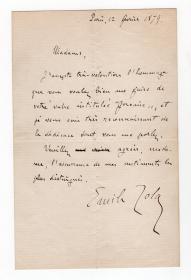 Paris, 12 février 1879.
Madame,
J'accepte très volontiers l'hommage
que vous voulez bien me faire de
votre valse intitulée, et
je vous suis très reconnaissant de
la dédicace dont vous me parlez.
Veuillez agréer, mada-
me, l'assurance de mes sentiments les
plus distingués.
Emile Zola